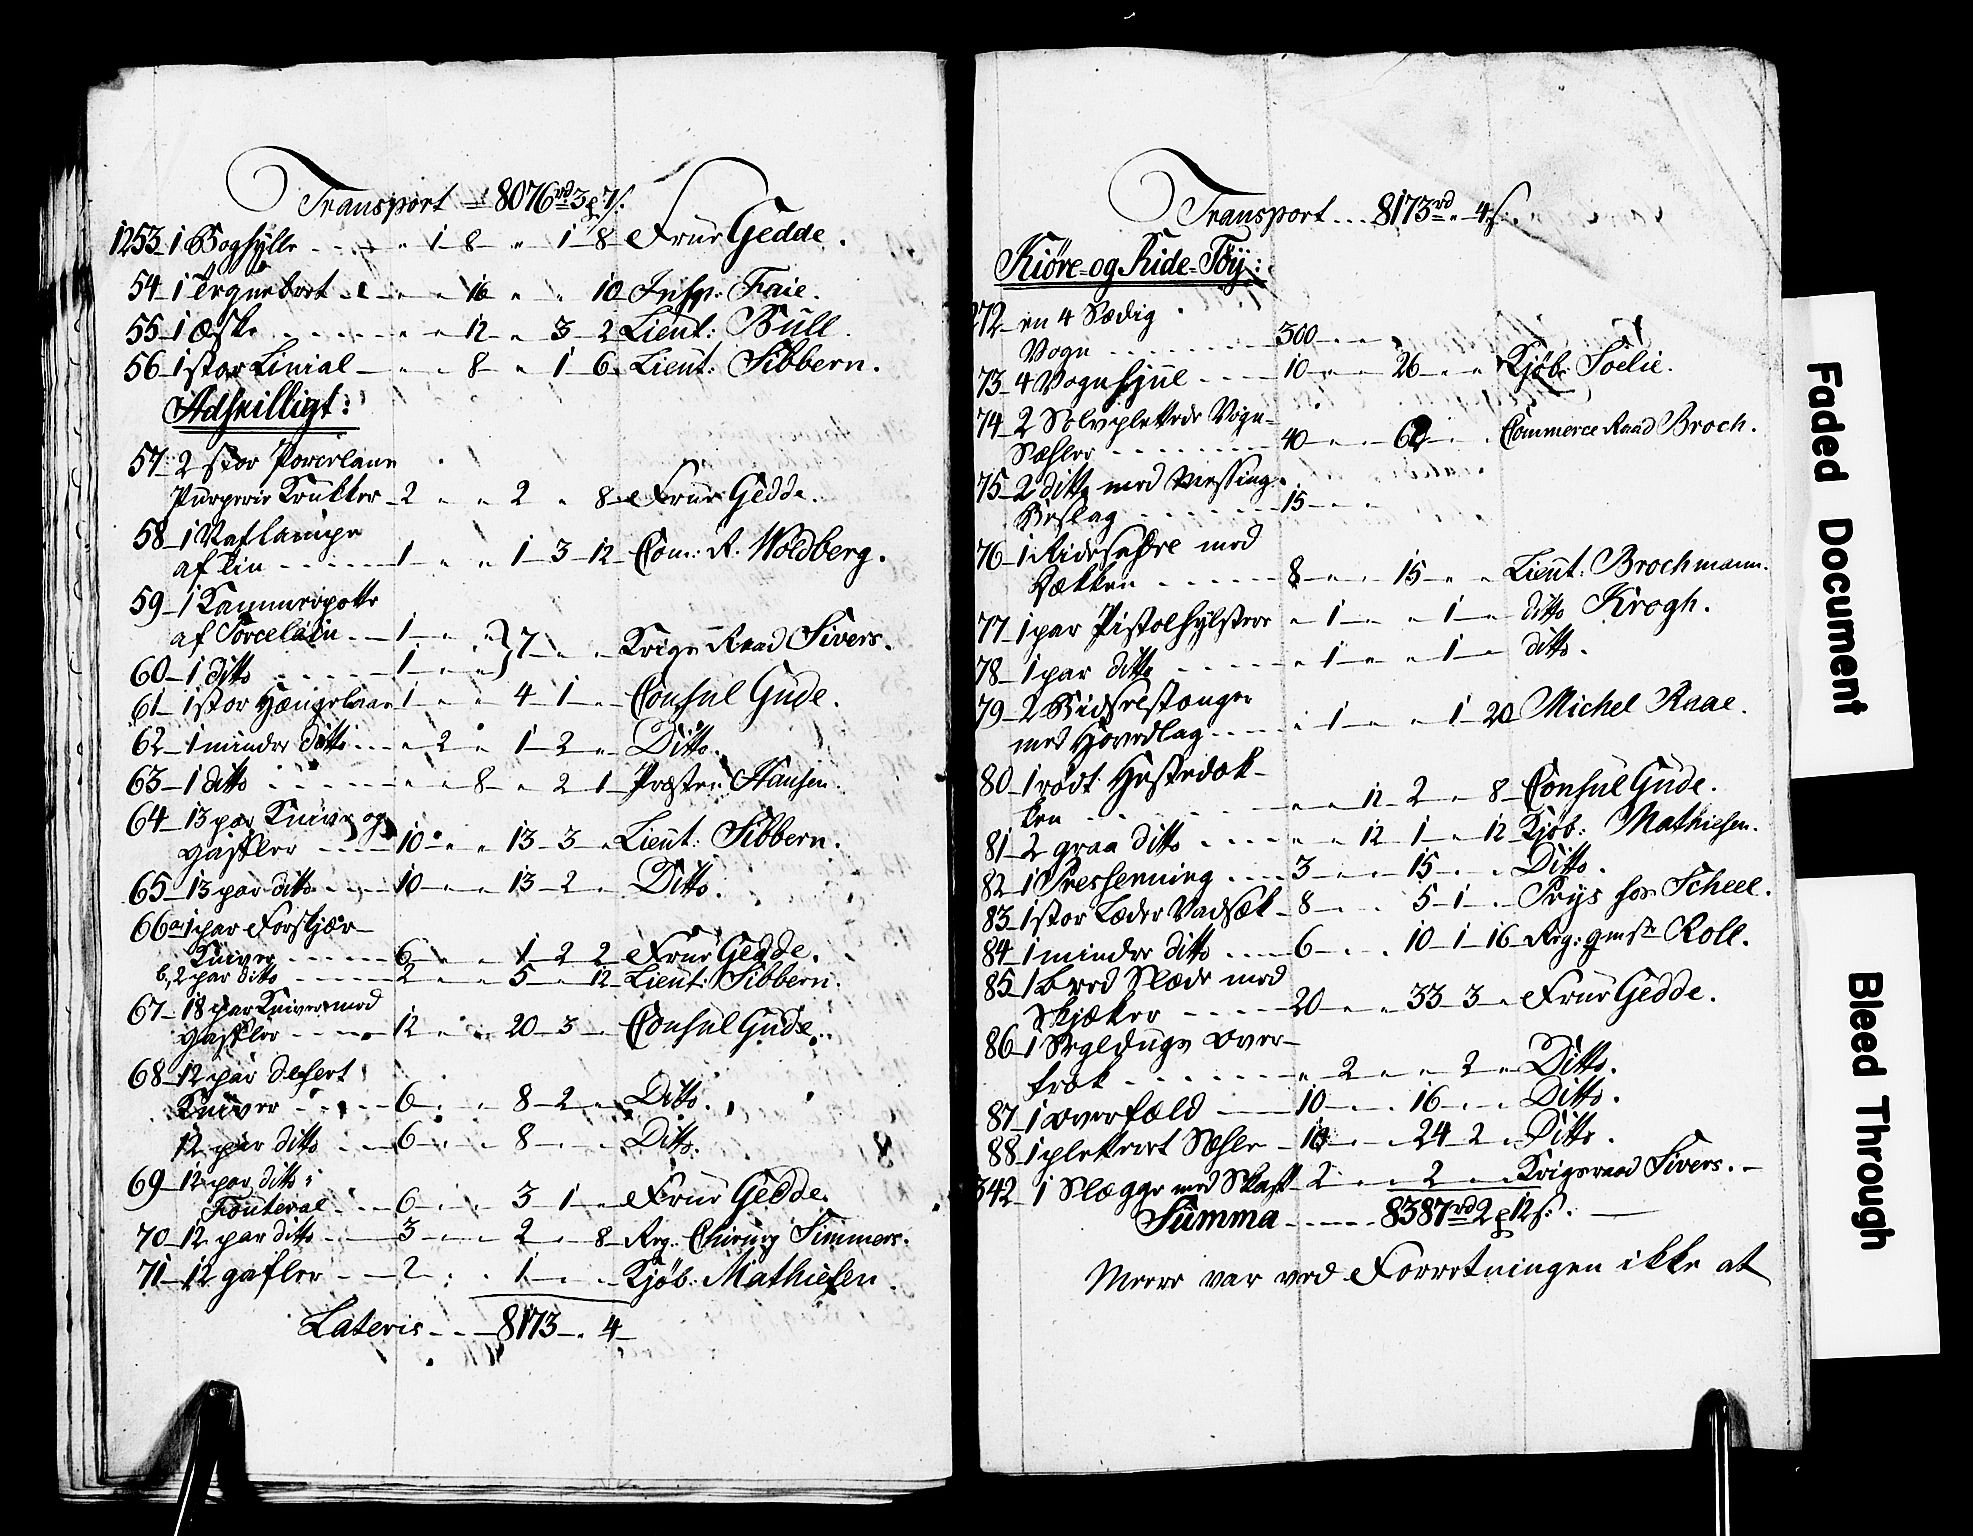 Transport 8076rd 3p 7s.
1253 1 Boghylle - 1 8 " 1 8 Frue Gedde.
54 1 Tegnebret " 16 " " 10 Insp: Faie.
55 1 Æske " 12 " 3 2 Lieut: Bull.
56 1 stor Linial " 8 " 1 6 Lieut: Sibbern.
Adskilligt:
57 2 stor Porcelain
Krukker 2 " " 2 " 8 Frue Gedde.
58 1
af Tin 1 " " 1 3 12 Com: R: Woldberg.
59 1 Kammerpotte
af Porcelain 1 " "
60 1 ditto 1 " " } 7 " " Krigs Raad Sivers.
61 1 stor Hængelaas 1 " " 4 1 " Consul Gude.
62 1 mindre ditto " 2 " 1 2 " Ditto.
63 1 ditto " " 8 " 2 1 Præsten Hansen.
64 13 par Knive og
Gafler 10 " " 13 3 " Lieut: Sibbern.
65 13 par ditto 10 " " 13 2 " Ditto.
66 a, 1 par Forskjær-
Kniver 6 " " 1 2 2 Frue Gedde.
b, 2 par ditto 2 " " 5 " 12 Lieut: Sibbern.
67 18 par Kniver med
Gafler 12 " " 20 3 " Consul Gude.
68 12 par desert
Kniver 6 " " 8 2 " Ditto.
12 par ditto 6 " " 8 " " Ditto.
69 12 par ditto i
Fouteral 6 " " 3 1 " Frue Gedde.
70 12 par ditto 3 " " 2 " 8 Reg: Chirurg Simmers.
71 12 gafler 2 " " 1 " " Kjøb: Mathiesen.
Lateris 8173 " 4
Transport 8173rd " 4s.
Kiøre- og Ride-Tøy:
272 en 4 Sædig
Vogn 300 " "
73 4 Vognhjul 10 " " 26 " " Kjøb: Soelie.
74 2 Sølvpletterede Vogn-
Sæhler 40 " " 62 " " Commerce Raad Broch.
75 2 ditto med Messing
Beslag 15 " "
76 1 Ridesadle med
Dækken 8 " " 15 " " Lieut: Brochmann.
77 1 par Pistolhylstere " 1 " " 1 " ditto Krogh.
78 1 par ditto " 1 " " 1 " ditto.
79 2 Bidselstænger
med Hovedlag " 1 " " 1 20 Michel Raae.
80 1 rødt Hestedæk-
ken " " 12 2 " 8 Consul Gude.
81 2 graa ditto " " 12 1 " 12 Kjøb: Mathiesen.
82 1 Pressenning 3 " " 15 " " Ditto.
83 1 stor Læder Vadsæk 8 " " 5 1 " Prys for Scheel.
84 1 mindre ditto 6 " " 10 1 16 Reg: qmstr Roll.
85 1 bred Slæde med
Skjæker 20 " " 33 3 " Frue Gedde.
86 1 Segldugs Over-
træk " 2 " " 2 " Ditto.
87 1 overfæld 10 " " 16 " " Ditto.
88 1 pletteret Sæhle 10 " " 24 2 " Ditto.
342 1 Slægge med Skaft 2 " " 2 " " Krigsraad Sivers.
Summa 8387rd 2p 12s.
Meere var ved Forretningen ikke at
Faded Document
Bleed Through